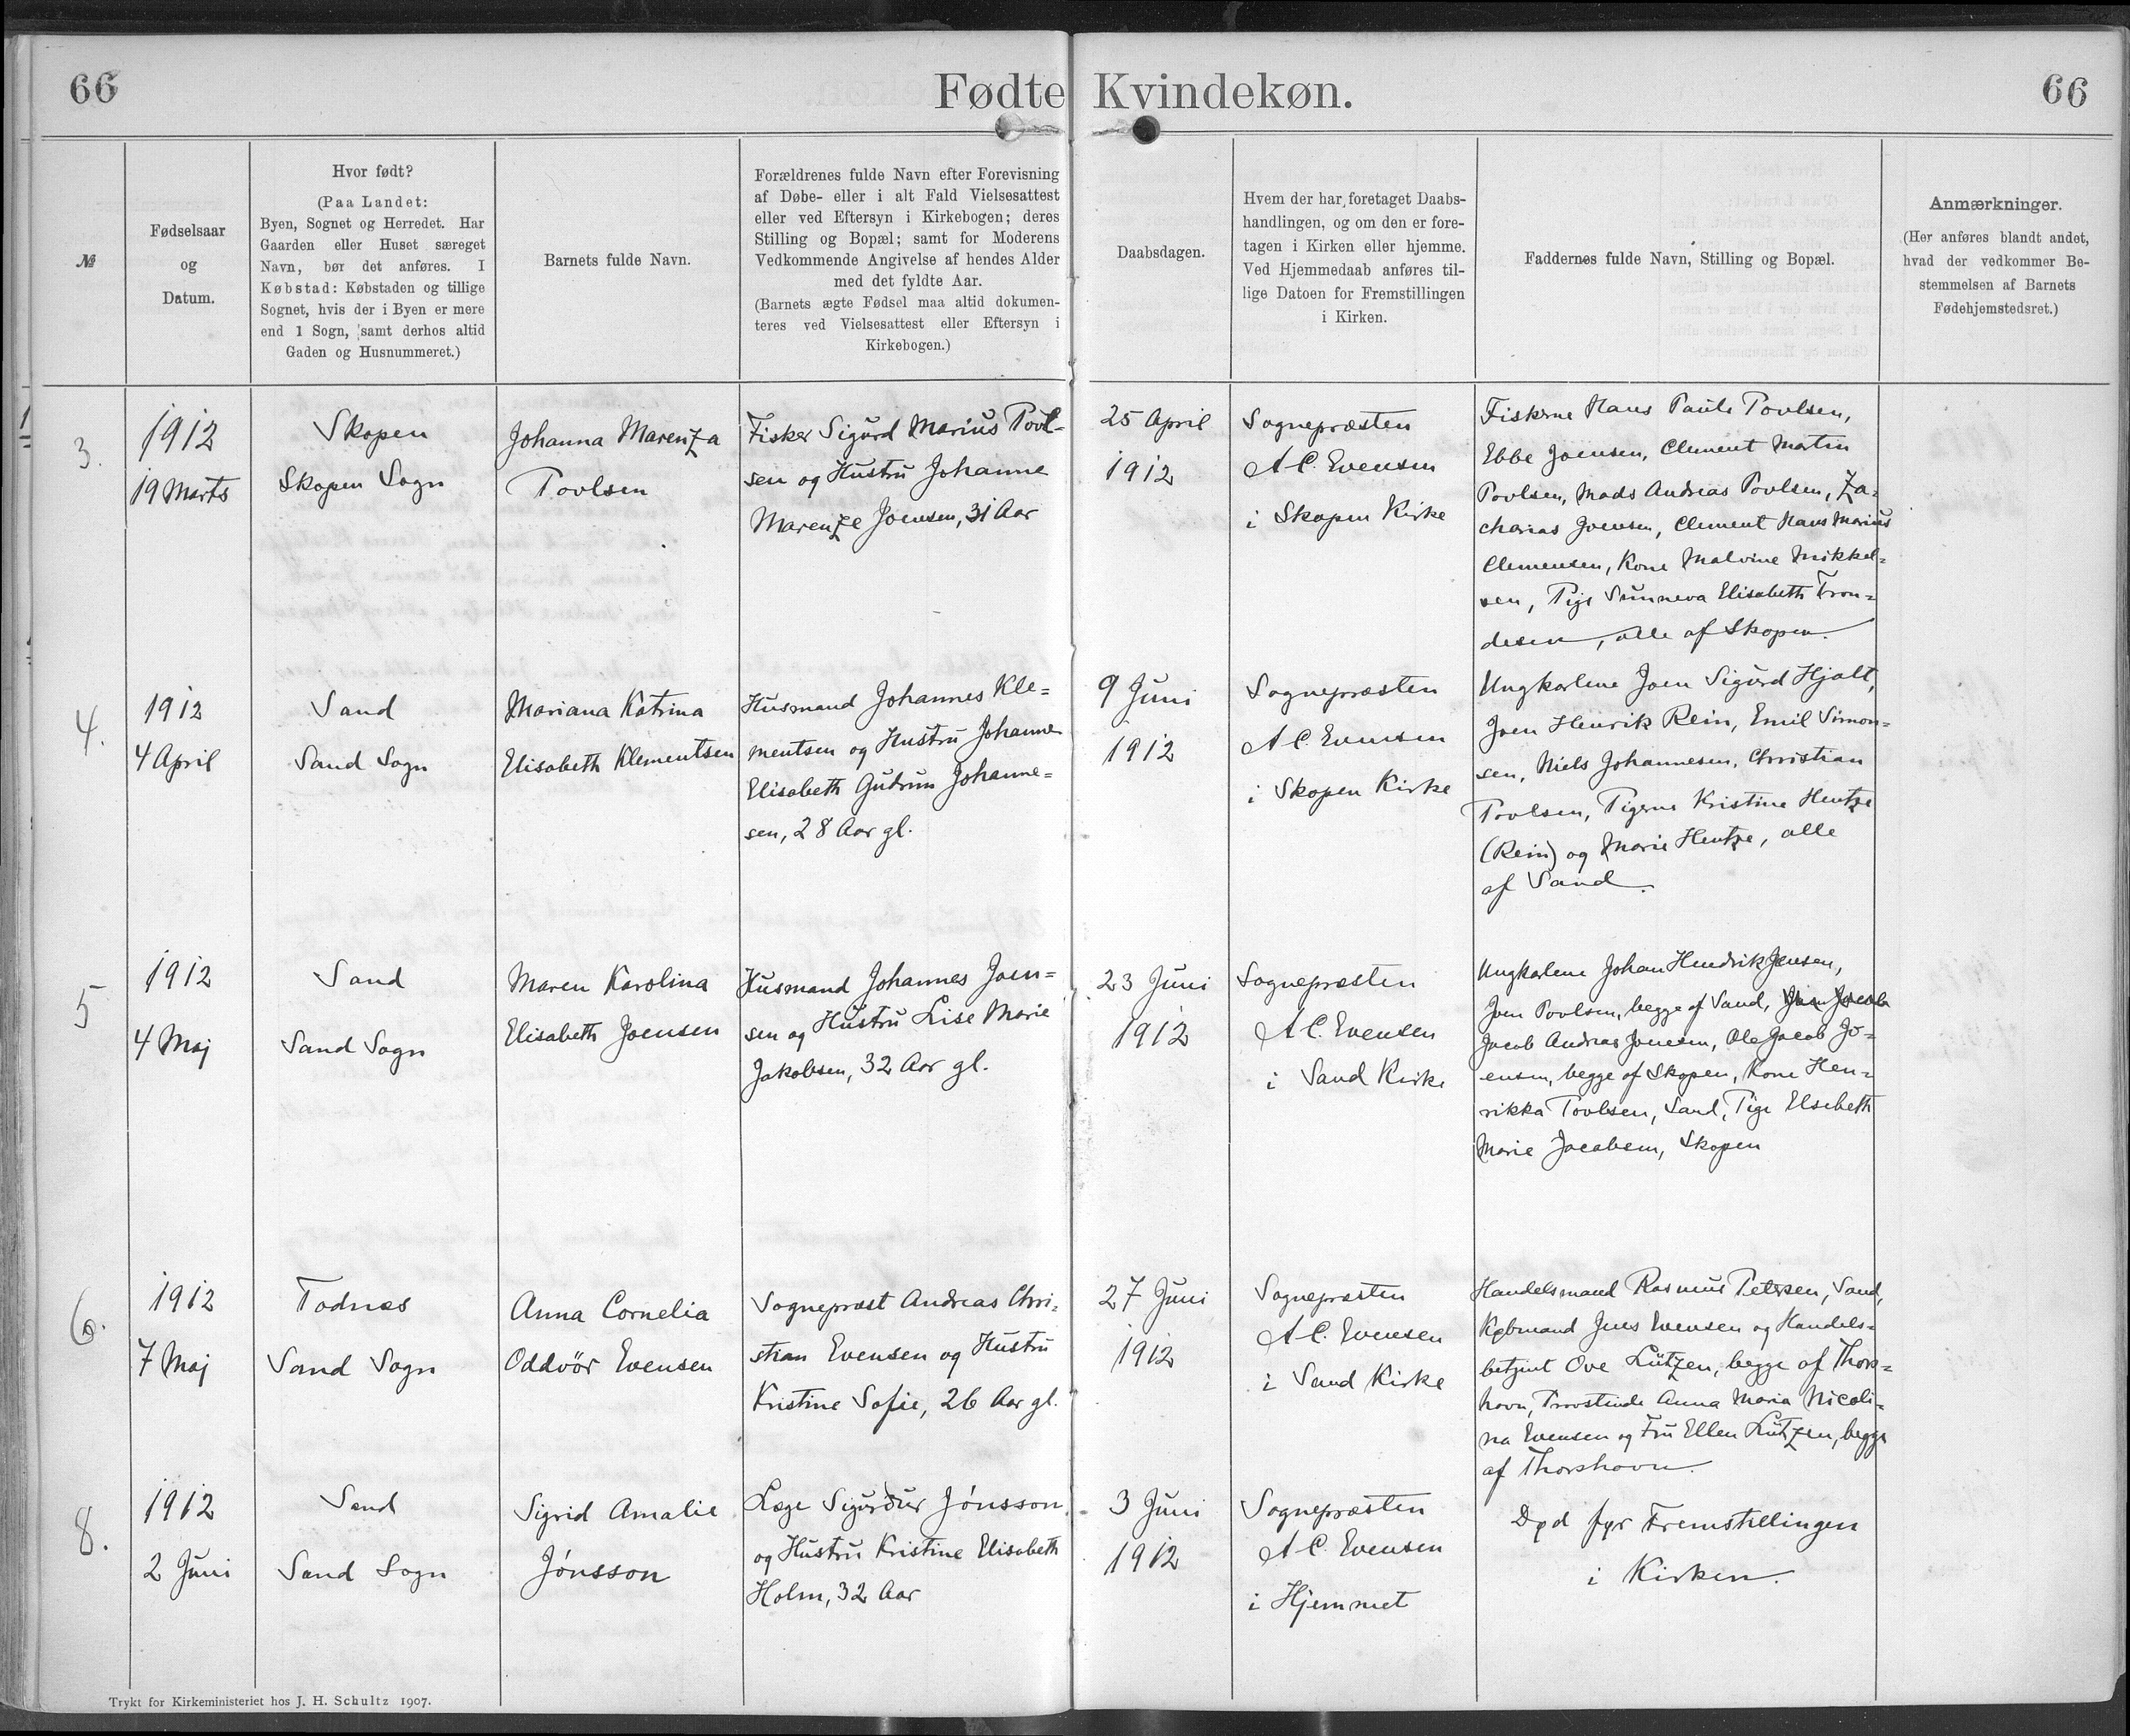 66
Fødte Kvindekøn.
66
№
Fødselsaar
og
Datum.
Hvor født?
(Paa Landet:
Byen, Sognet og Herredet. Har
Gaarden eller Huset særeget
Navn, bør det anføres. I
Købstad: Købstaden og tillige
Sognet, hvis der i Byen er mere
end 1 Sogn, samt derhos altid
Gaden og Husnummeret.)
Barnets fulde Navn.
Forældrenes fulde Navn efter Forevisning
af Døbe- eller i alt Fald Vielsesattest
eller ved Eftersyn i Kirkebogen; deres
Stilling og Bopæl; samt for Moderens
Vedkommende Angivelse af hendes Alder
med det fyldte Aar.
(Barnets ægte Fødsel maa altid dokumen-
teres ved Vielsesattest eller Eftersyn i
Kirkebogen.)
Daabsdagen.
Hvem der har foretaget Daabs-
handlingen, og om den er fore-
tagen i Kirken eller hjemme.
Ved Hjemmedaab anføres til-
lige Datoen for Fremstillingen
i Kirken.
Faddernes fulde Navn, Stilling og Bopæl.
Anmærkninger.
(Her anføres blandt andet,
hvad der vedkommer Be-
stemmelsen af Barnets
Fødehjemstedsret.)
3.
1912
19 Marts
Skopen
Skopen Sogn
Johanna Marenza
Poulsen
Fisker Sigurd Marius Poul-
sen og Hustru Johanne
Marenze Joensen, 31 Aar
25 April
1912
Sognepræsten
A C. Evensen
i Skopen Kirke
Fiskerne Hans Paule Poulsen,
Ebbe Joensen, Clement Martin
Poulsen, Mads Andreas Poulsen, Za-
charias Joensen, Clement Hans Marius
Clementsen, Kone Malvine Mikkel-
sen, Pige Sunneva Elisabeth Tron-
desen, alle af Skopen.
4.
1912
4 April
Sand
Sand Sogn
Mariana Katrina
Elisabeth Klementsen
Husmand Johannes Kle-
mentsen og Hustru Johanne
Elisabeth Gudrun Johanne-
sen, 28 Aar gl.
9 Juni
1912
Sognepræsten
A C. Evensen
i Skopen Kirke
Ungkarlene Joen Sigurd Hjalt,
Joen Henrik Rein, Emil Simon-
sen, Niels Johannesen, Christian
Poulsen, Pigerne Kristine Hentze
(Rein) og Marie Hentze, alle
af Sand.
5
1912
4 Maj
Sand
Sand Sogn
Maren Karolina
Elisabeth Joensen
Husmand Johannes Joen-
sen og Hustru Lise Marie
Jakobsen, 32 Aar gl.
23 Juni
1912
Sognepræsten
A C. Evensen
i Sand Kirke
Ungkarlene Johan Hendrik Jensen,
Joen Poulsen, begge af Sand,
Jacob Andreas Joensen, Ole Jacob Jo-
ensen, begge af Skopen, Kone Hen-
rikka Poulsen, Sand, Pige Elsebeth
Marie Jacobsen, Skopen
6.
1912
7 Maj
Todnæs
Sand Sogn
Anna Cornelia
Oddvör Evensen
Sognepræst Andreas Chri-
stian Evensen og Hustru
Kristine Sofie, 26 Aar gl.
27 Juni
1912
Sognepræsten
A C. Evensen
i Sand Kirke
Handelsmand Rasmus Petersen, Sand,
Købmand Jens Evensen og Handels-
betjent Ove Lützen, begge af Thors-
havn, Provstinde Anna Maria Nicoli-
na Evensen og Fru Ellen Lützen, begge
af Thorshavn.
8.
1912
2 Juni
Sand
Sand Sogn
Sigrid Amalie
Jónsson
Læge Sigurður Jónsson,
og Hustru Kristine Elisabeth
Holm, 32 Aar
3 Juni
1912
Sognepræsten
A C. Evensen
i Hjemmet
Død før Fremstillingen
i Kirken.
Trykt for Kirkeministeriet hos J. H. Schultz 1907.